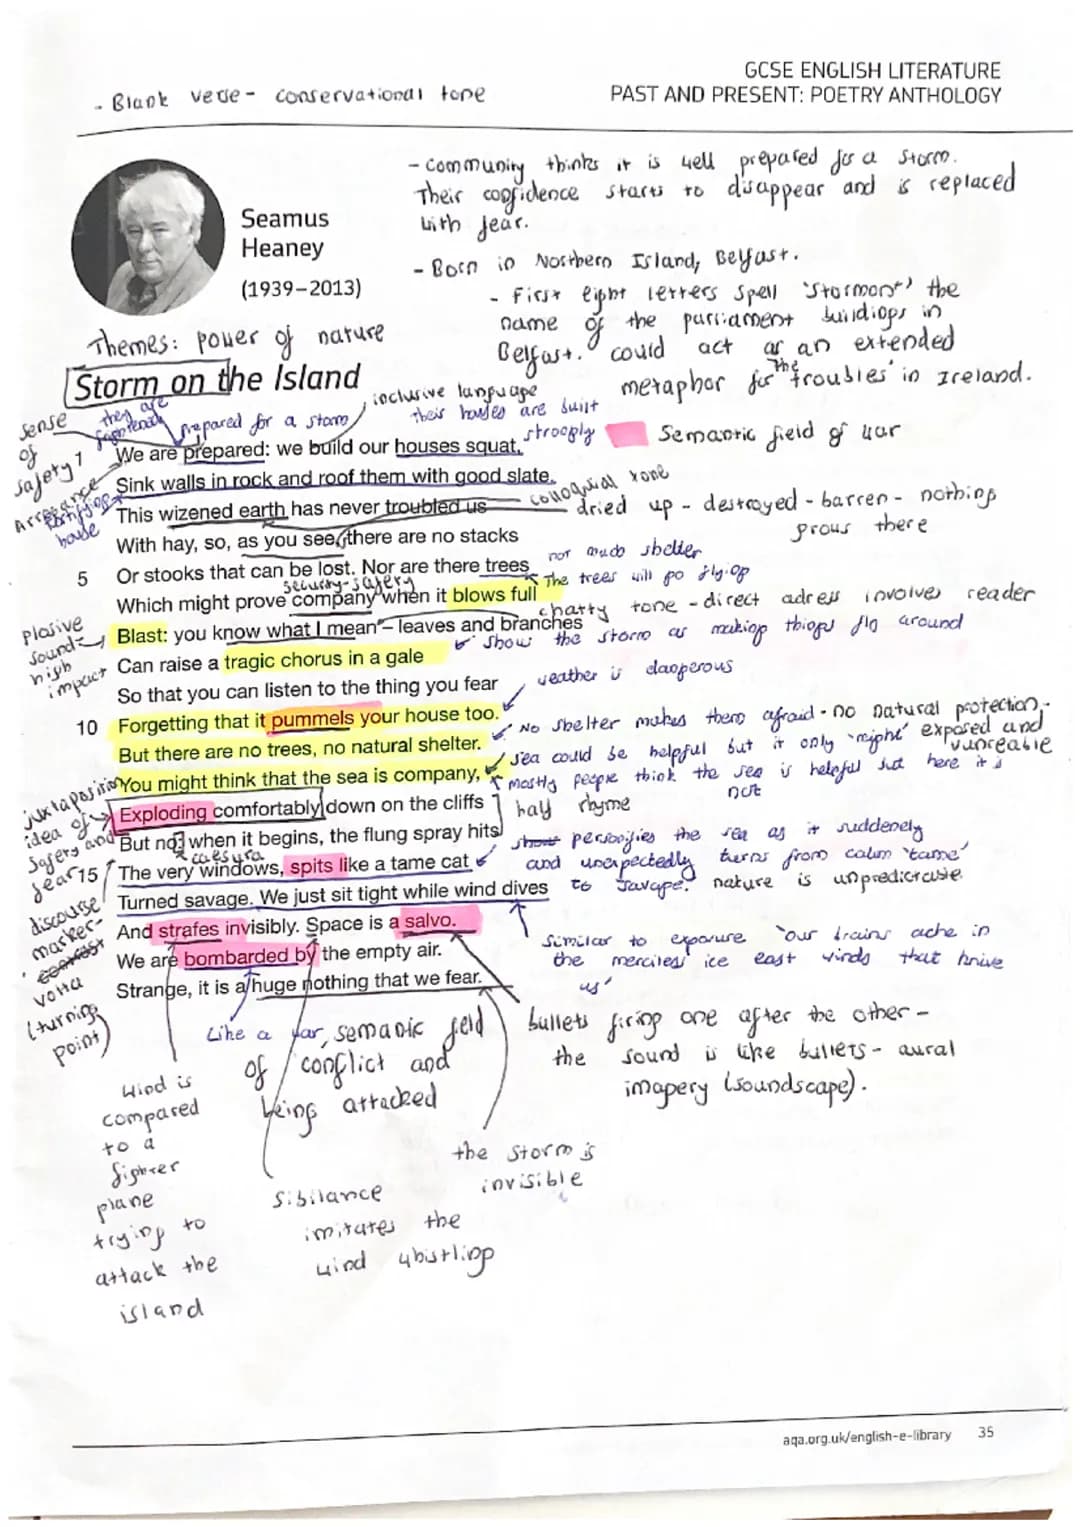 GCSE ENGLISH LITERATURE
PAST AND PRESENT: POETRY ANTHOLOGY
- Blank verse - conservational tone
- Community thinks it is well prepared for a storm.
Their confidence starts to disappear and is replaced
with fear.
Seamus
Heaney
(1939–2013)
- Born in Northern Island, Belfast.
- First eight letters spell 'stormont' the
name of the parliament buildings in
Belfast. could act as an extended
metaphor for 'The troubles' in Ireland.
Themes: power of nature
Storm on the Island
inclusive language
their houses are built
strongly
Semantic field of war
sense
of
safety
they are
prepared for a storm
We are prepared: we build our houses squat,
Sink walls in rock and roof them with good slate.
house
colloquial tone
This wizened earth has never troubled us
dried up - destroyed - barren - nothing
grows there
With hay, so, as you see, there are no stacks
5 Or stooks that can be lost. Nor are there trees
not much shelter
The trees will go flying
security - safety
Which might prove company when it blows full
chatty tone - direct adress involves reader
plosive
sound -
high
impact
Blast: you know what I mean – leaves and branches
show the storm as making things fly around
Can raise a tragic chorus in a gale
So that you can listen to the thing you fear
weather is dangerous
10 Forgetting that it pummels your house too.
No shelter makes them afraid - no natural protection -
exposed and
But there are no trees, no natural shelter.
sea could be helpful but it only 'might'
You might think that the sea is company,
mostly people think the sea is helpful but here it is
not
juxtaposition
idea of
safety and
fear
Exploding comfortably down on the cliffs
half rhyme
But no: when it begins, the flung spray hits
caesura
personifies the sea as it suddenly
and unexpectedly turns from calm 'tame'
to savage. nature is unpredictable
15 The very windows, spits like a tame cat
Turned savage. We just sit tight while wind dives
discourse
marker -
contrast
volta
(turning
point)
And strafes invisibly. Space is a salvo.
We are bombarded by the empty air.
Strange, it is a huge nothing that we fear.
Similar to exposure 'our brains ache in
the merciless ice east winds that knive
us'
Like a war, semanic feild
of conflict and
being attacked
bullets firing one after the other -
the sound is like bullets - aural
imagery (soundscape).
Wind is
compared
to a
fighter
plane
trying to
attack the
island
Sibilance
imitates the
wind whistling
the storm is
invisible
aqa.org.uk/english-e-library 35